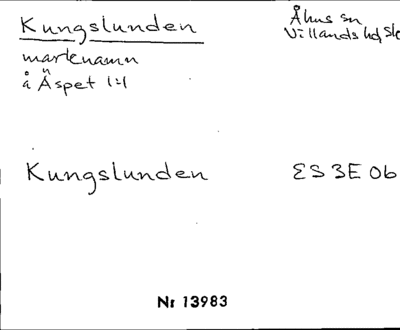 Kungslunden
Åhus sn
marknamn
Villands hd, Sk
å Äspet 1:1
Kungslunden
ES 3E 06
Nr 13983